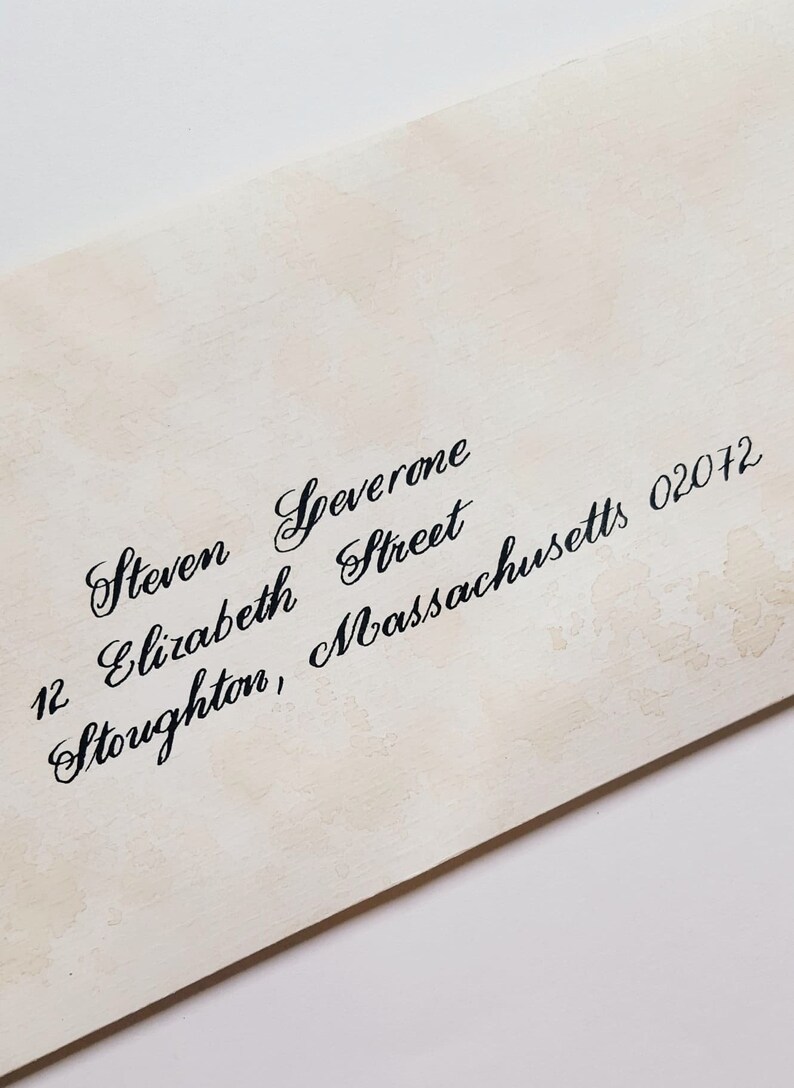 Steven Leverone
12 Elizabeth Street
Stoughton, Massachusetts 02072